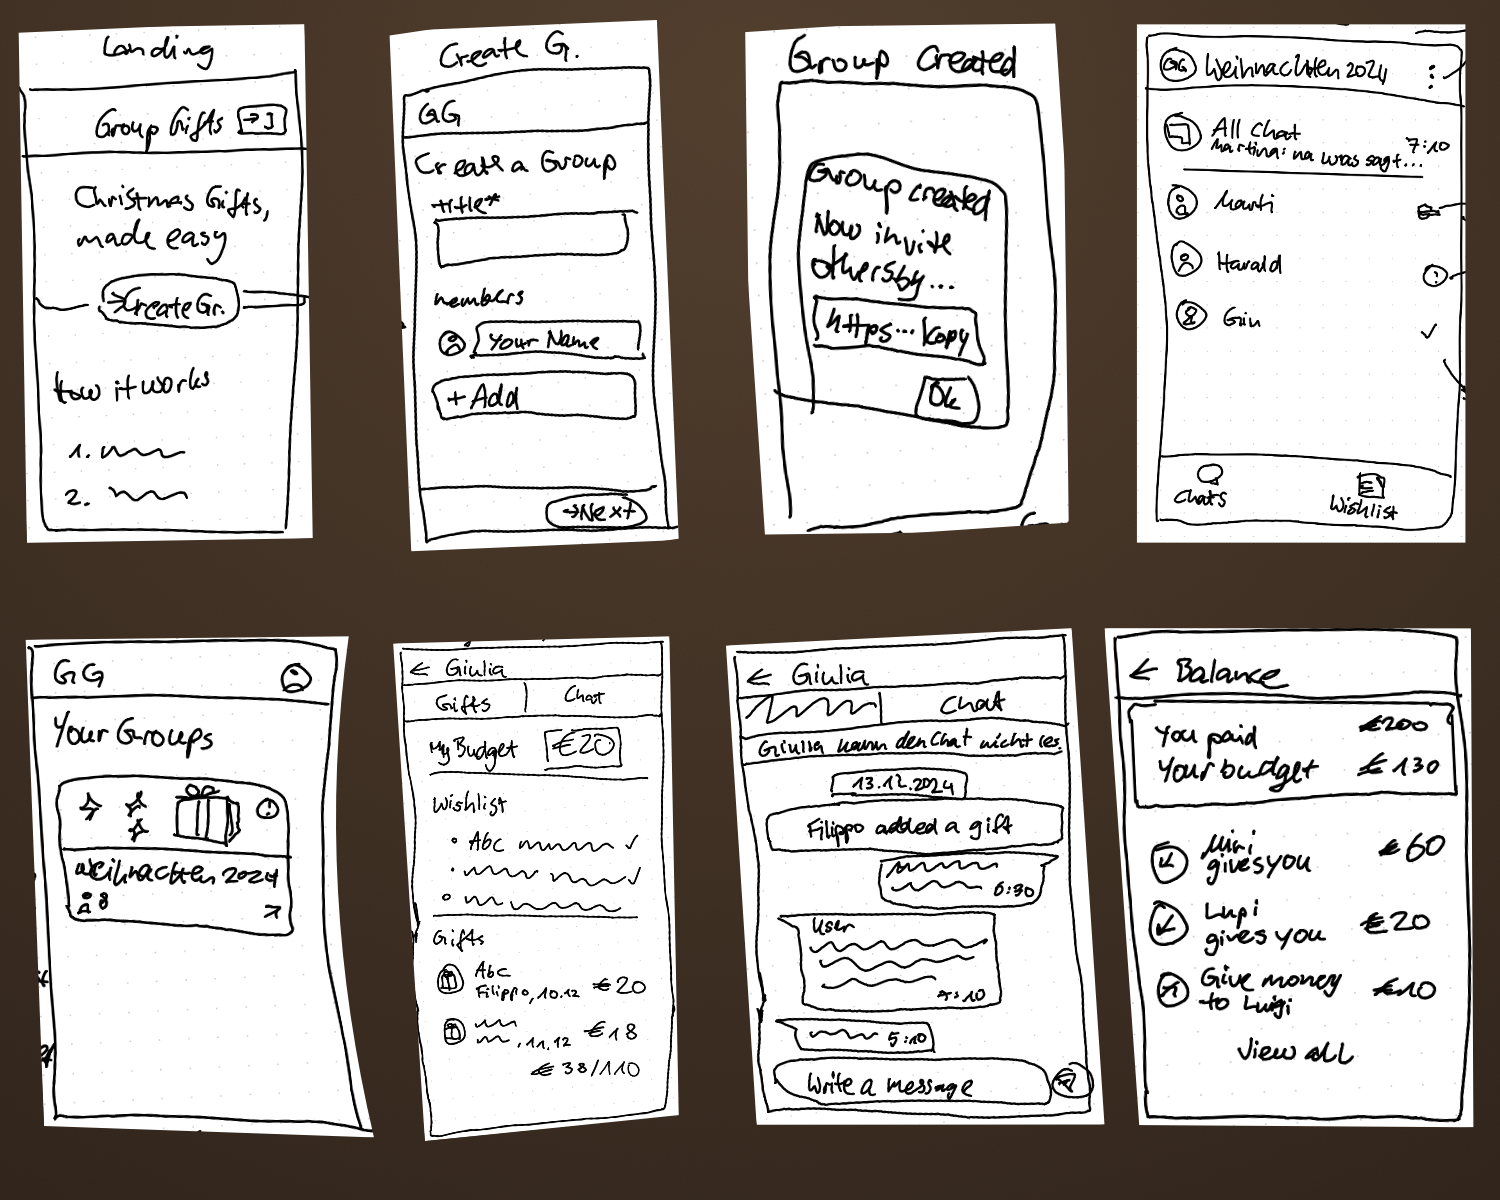 Landing
Group Gifts
Christmas Gifts,
made easy
→Create Gr.
How it works
1.
2.
Create G.
GG
Create a Group
title*
members
Your Name
+ Add
→Next
Group Created
Group created
Now invite
others by...
https... kopy
Ok
GG Weihnachten 2024
All Chat
Martina: na was sagt...
7:10
Marti
Harald
Gin
Chats
Wishlist
GG
Your Groups
Weihnachten 2024
8
← Giulia
Gifts Chat
My Budget €20
Wishlist
Abc
Gifts
Abc
Filippo, 10.12 €20
, 11.12 €18
€38/110
← Giulia
Chat
Giulia kann den Chat nicht les.
13.12.2024
Filippo added a gift
6:30
User
7:10
5:10
Write a message
← Balance
You paid €200
Your budget €130
Mimi
gives you €60
Lupi
gives you €20
Give money
to Luigi €10
View all